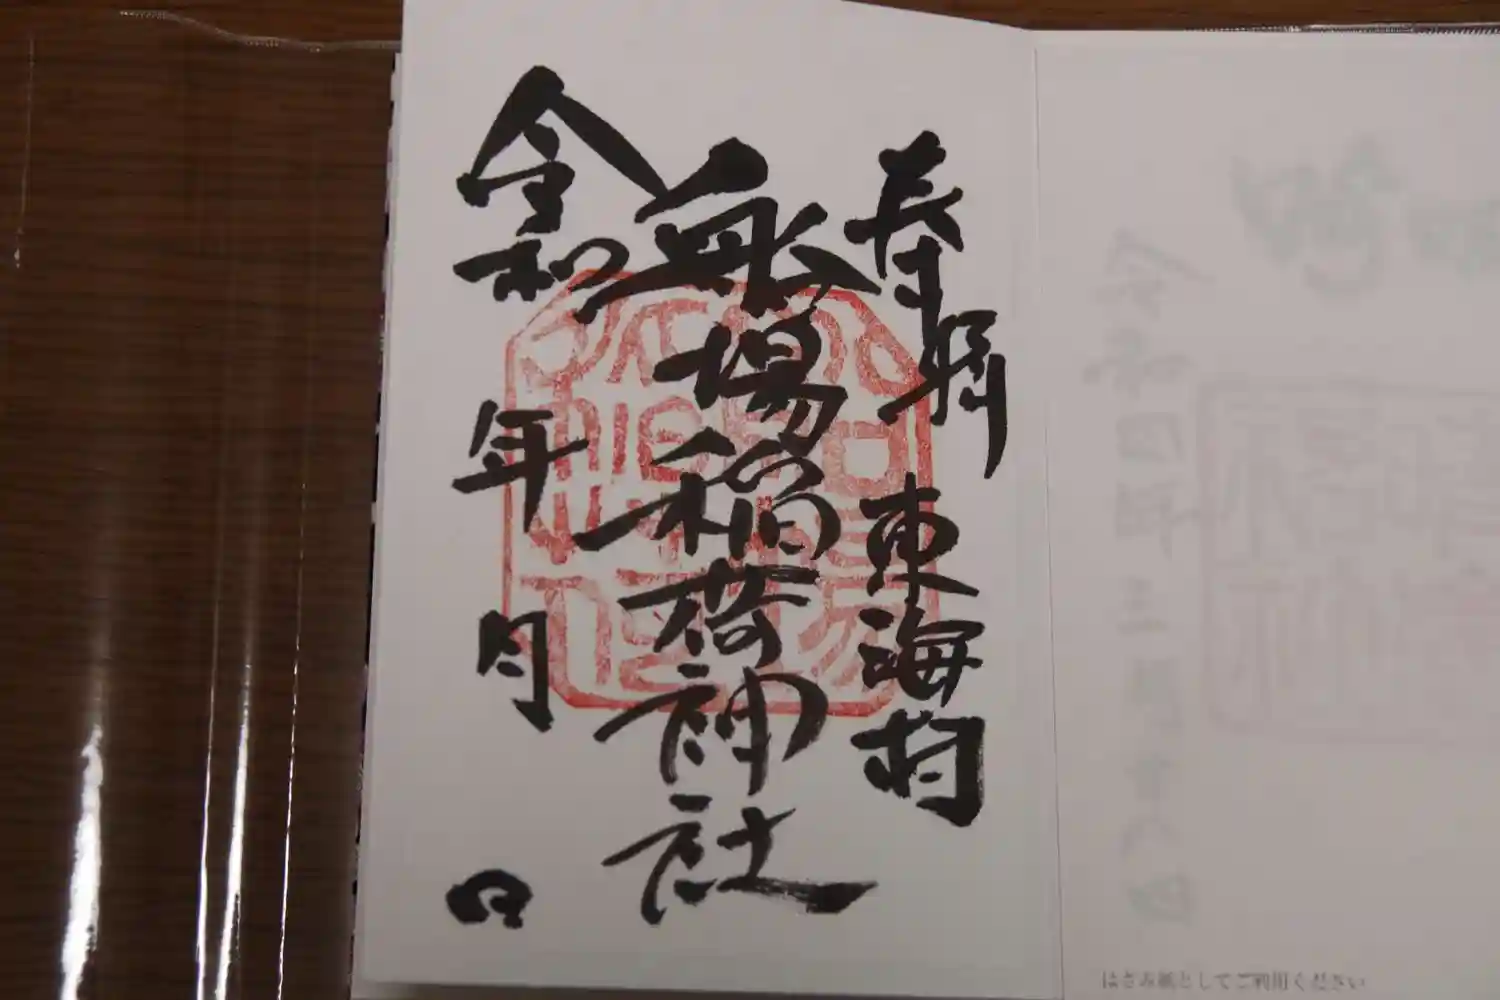 奉拝 東海村
船場稲荷神社
令和 年 月 日
はさみ紙としてご利用ください